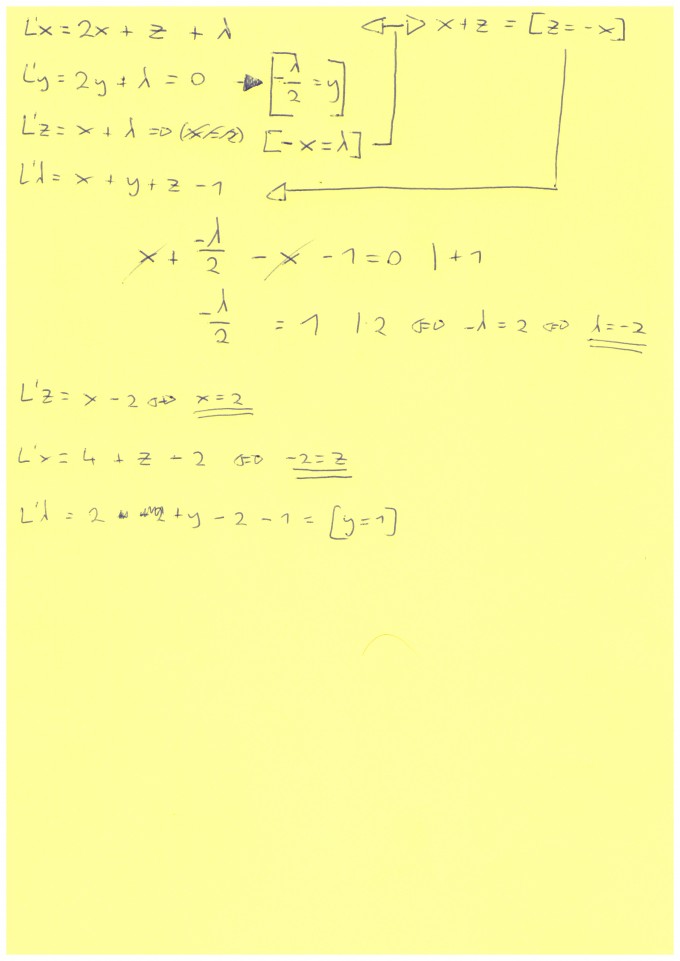 L'x = 2x + z + λ ⇔ x+z = [z=-x]
L'y = 2y + λ = 0 → [-λ/2 = y]
L'z = x + λ = 0 [-x=λ]
L'λ = x + y + z - 1
x + -λ/2 - x - 1 = 0 | +1
-λ/2 = 1 | ·2 ⇔ -λ = 2 ⇔ λ = -2
L'z = x - 2 ⇔ x = 2
L'x = 4 + z - 2 ⇔ -2 = z
L'λ = 2 + y - 2 - 1 = [y=1]